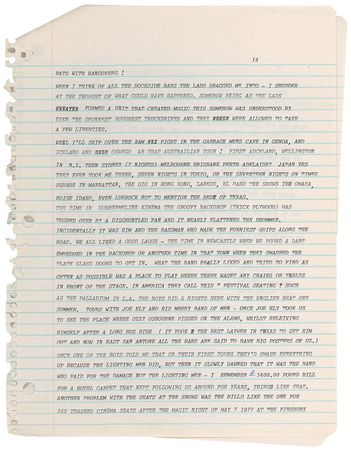 14
RATS WITH HANGOVERS !
WHEN I THINK OF ALL THE DOCKSIDE BARS THE LADS DRAGGED ME INTO - I SHUDDER
AT THE THOUGHT OF WHAT COULD HAVE HAPPENED. SOMEHOW BEING AS THE LADS
FORMED A UNIT THAT CREATED MUSIC THIS SOMEHOW WAS UNDERSTOOD BY
EVEN THE DRUNKEST BURGEST TRUCKDRIVER AND THEY WERE ALLOWED TO TAKE
A FEW LIBERTIES.
WELL I'LL SKIP OVER THE RAW FIGHT IN THE CABBAGE MENS CAFE IN GENOA, AND
ICELAND AND OSWEGO AH THAT AUSTRALIAN TOUR ! FIRST AUCKLAND, WELLINGTON
IN N.Z. THEN SYDNEY (3 NIGHTS) MELBOURNE BRISBANE PERTH ADELAIDE? JAPAN YES
THEY EVEN TOOK ME THERE, SEVEN NIGHTS IN TOKYO, OR THE SEVENTEEN NIGHTS ON TIMES
SQUARE IN MANHATTAN, THE GIG IN HONG KONG, LAREDO, EL PASO THE SHOWS IN OMAHA
BOISE IDAHO, EVEN LUBBOCK NOT TO MENTION THE REST OF TEXAS.
THE TIME IN DUNFERMLINE KINEMA THE GROOVY BACKDROP (THICK PLYWOOD) WAS
PUSHED OVER BY A DISGRUNTLED FAN AND IT NEARLY FLATTENED THE DRUMMER,
INCIDENTALLY IT WAS HIM AND THE BASSMAN WHO MADE THE FUNNIEST QUIPS ALONG THE
ROAD. WE ALL LIKED A GOOD LAUGH - THE TIME IN NEWCASTLE WHEN WE FOUND A DART
EMBEDDED IN THE BACKDROP OR ANOTHER TIME IN THAT TOWN WHEN THEY SMASHED THE
PLATE GLASS DOORS TO GET IN. WHAT THE BAND REALLY LIKED AND TRIED TO FIND AS
OFTEN AS POSSIBLE WAS A PLACE TO PLAY WHERE THERE WASNT ANY CHAIRS OR TABLES
IN FRONT OF THE STAGE. IN AMERICA THEY CALL THIS " FESTIVAL SEATING " SUCH
AS THE PALLADIUM IN L.A. THE BOYS DID 4 NIGHTS HERE WITH THE ENGLISH BEAT ONE
SUMMER. TOURS WITH JOE ELY AND HIS MERRY BAND OF MEN - ONCE JOE ELY TOOK US
TO SEE THE PLACE WHERE OZZY OSBOURNE PISSED ON THE ALAMO, WHILST RELEIVING
HIMSELF AFTER A LONG BUS RIDE ( IT TOOK THE BEST LAWYER IN TEXAS TO GET HIM
OUT AND NOW IN EAST SAN ANTONE ALL THE BARS ARE SAID TO HAVE BIG POSTERS OF OZ.)
ONCE ONE OF THE BOYS TOLD ME THAT ON THEIR FIRST TOURS THEY'D SMASH EVERYTHING
UP BECAUSE THE LIGHTING MEN DID, BUT THEN IT SLOWLY DAWNED THAT IT WAS THE BAND
WHO PAID FOR THE DAMAGE NOT THE LIGHTING MEN - I REMEMBER 1400.00 POUND BILL
FOR A HOTEL CARPET THAT KEPT FOLLOWING US AROUND FOR YEARS, THINGS LIKE THAT.
ANOTHER PROBLEM WITH THE SEATS AT THE SHOWS WAS THE BILLS LIKE THE ONE FOR
350 TRASHED CINEMA SEATS AFTER THE MAGIC NIGHT OF MAY 7 1977 AT THE FINSBURY